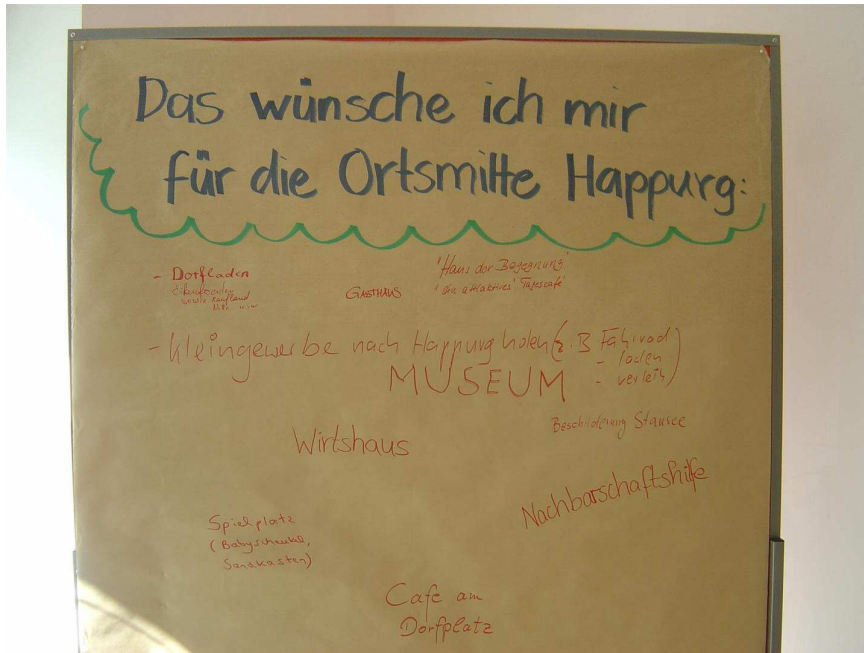 Das wünsche ich mir
für die Ortsmitte Happurg:
- Dorfladen
Kaufland
GASTHAUS
"Haus der Begegnung"
"ein attraktives" Tagescafé"
- Kleingewerbe nach Happurg holen (z.B Fahrrad
- laden
- verleih)
MUSEUM
Beschilderung Stausee
Wirtshaus
Nachbarschaftshilfe
Spielplatz
(Babyschaukel,
Sandkasten)
Cafe am
Dorfplatz